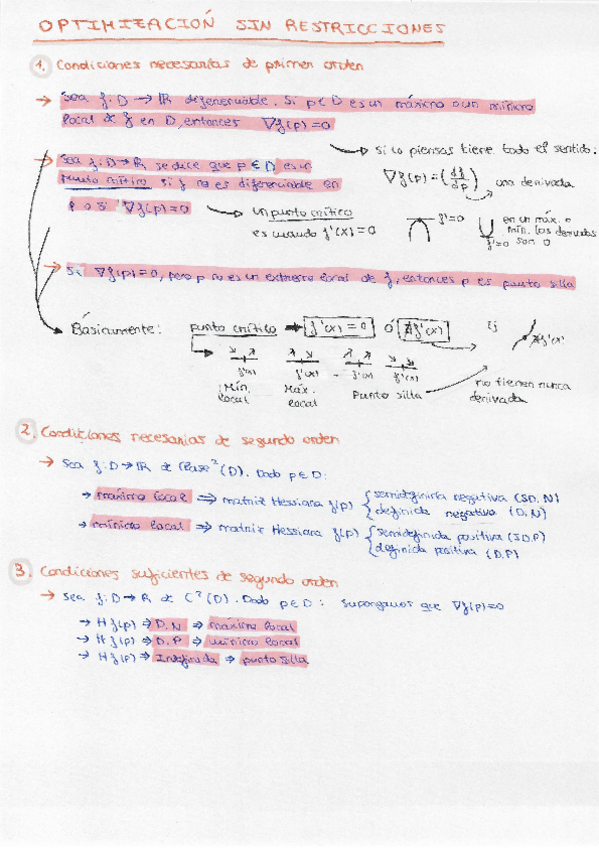 OPTIMIZACIÓN SIN RESTRICCIONES
1. Condiciones necesarias de primer orden
→ Sea f: D → ℝ diferenciable. Si p ∈ D es un máximo o un mínimo
local de f en D, entonces ∇f(p) = 0
→ si lo piensas tiene todo el sentido:
∇f(p) = (df/dp)
una derivada
→ Sea f: D → ℝ se dice que p ∈ D es un
punto crítico si f no es diferenciable en
p o si ∇f(p) = 0
→ un punto crítico
es cuando f'(x) = 0
f' = 0
f' = 0
en un máx. o
mín. las derivadas
son 0
→ Si ∇f(p) = 0, pero p no es un extremo local de f, entonces p es punto silla
Básicamente: punto crítico → f'(x) = 0 ó ∄f'(x) Ej ∄f'(x)
f'(x) f'(x) f'(x) f'(x)
Mín. local
Máx. local
Punto silla
no tienen nunca
derivada
2. Condiciones necesarias de segundo orden
→ Sea f: D → ℝ de Clase²(D). Dado p ∈ D:
→ máximo local ⇒ matriz Hessiana f(p) { semidefinida negativa (SD.N)
definida negativa (D.N)
→ mínimo local ⇒ matriz Hessiana f(p) { semidefinida positiva (SD.P)
definida positiva (D.P)
3. Condiciones suficientes de segundo orden
→ Sea f: D → ℝ de C²(D). Dado p ∈ D: supongamos que ∇f(p) = 0
→ H f(p) ⇒ D.N ⇒ máximo local
→ H f(p) ⇒ D.P ⇒ mínimo local
→ H f(p) ⇒ Indefinida ⇒ punto silla